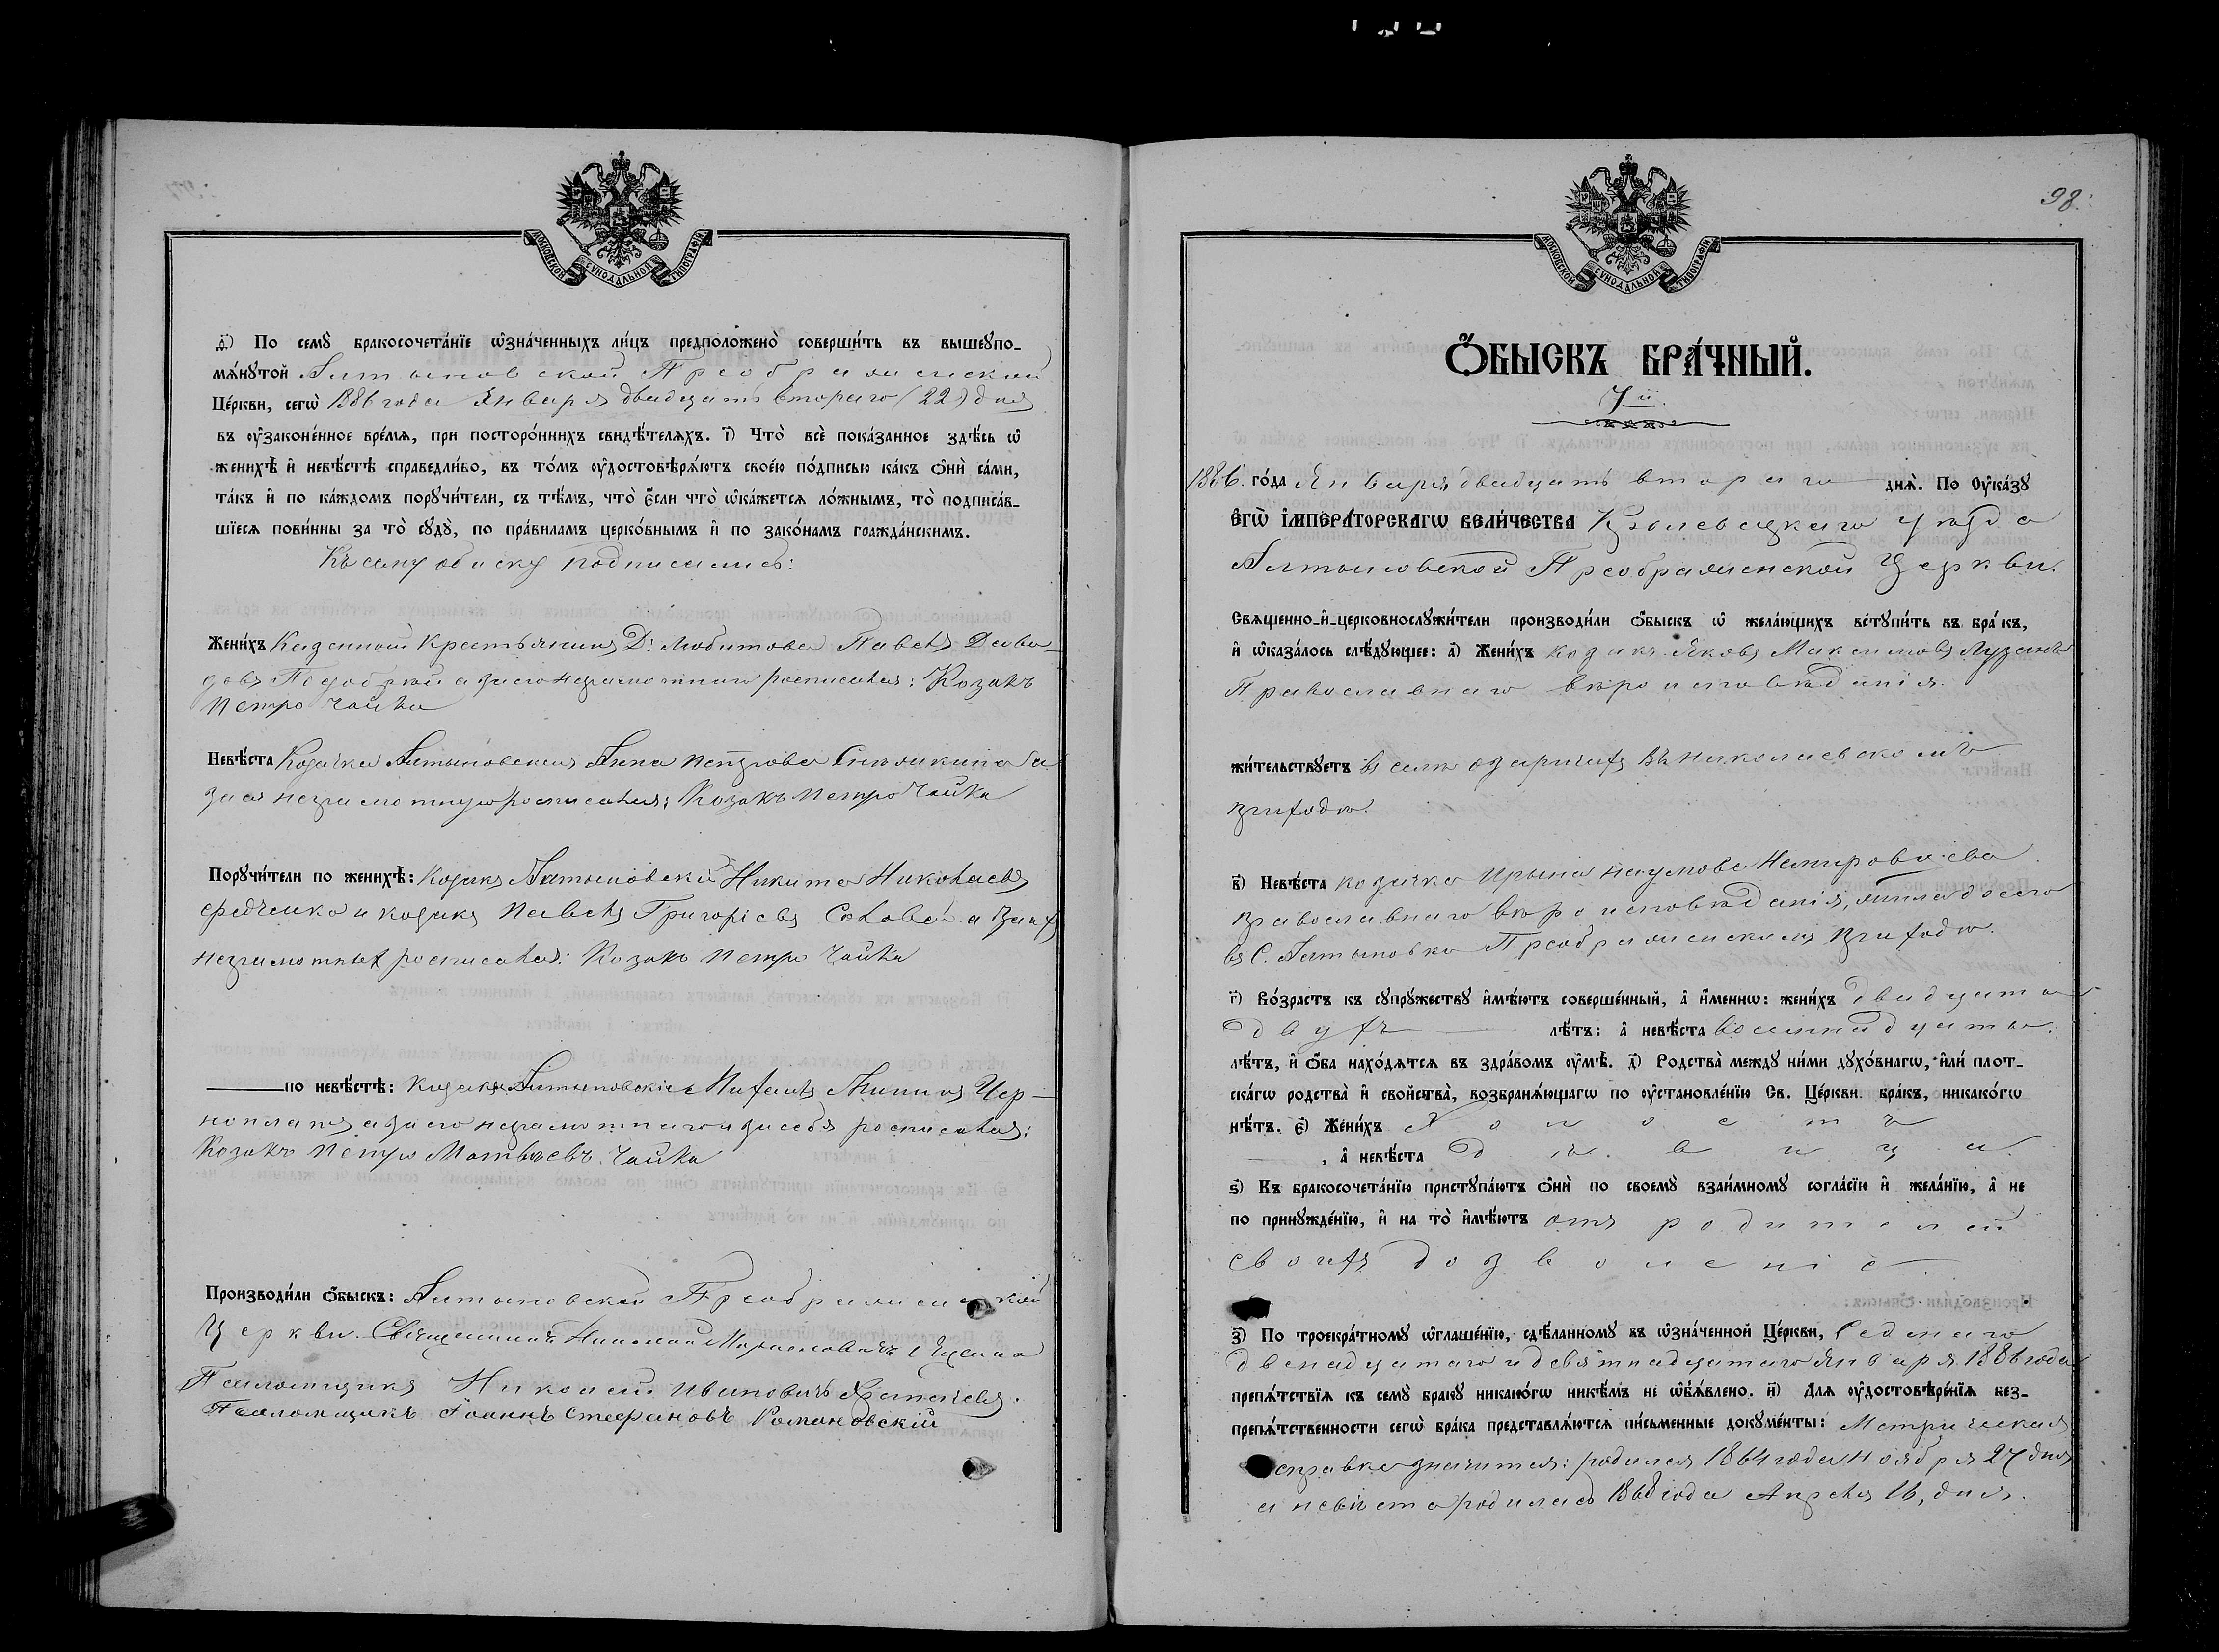 МОСКОВСКОЙ СУНОДАЛЬНОЙ ТИПОГРАФІИ
д҃і) По семꙋ̀ бракосочета́нїе ѡ҆зна́ченныхъ ли́цъ предположено̀ соверши́ть въ вышеꙋпо-
мѧ́нꙋтой Алтыновской Преображенской
Це́ркви, сегѡ̀ 1886 года Января двадцать втораго (22) дня
въ ᲂу҆зако́не́нное вре́мѧ, при посторо́ннихъ свидѣ́телѧхъ. і҃) Что̀ всѐ пока́занное здѣ́сь ѡ҆
женихѣ̀ и҆ невѣ́стѣ справедли́во, въ то́мъ ᲂу҆достовѣрѧ́ютъ свое́ю по́дписью ка́къ ѻ҆нѝ са́ми,
та́къ и҆ по ка́ждомъ порꙋчи́тели, съ тѣ́мъ, что̀ є҆́сли что̀ ѡ҆ка́жетсѧ ло́жнымъ, то̀ подписа́в-
шїесѧ пови́нны за то̀ сꙋдꙋ̀, по пра́виламъ церко́внымъ и҆ по зако́намъ гражда́нскимъ.
Къ сему обиску подписались:
Жени́хъ Казенной Крестьянинъ Д: Любитова Павелъ Даві-
довъ а за его неграмотнаго росписался: Козакъ
Петро Чайка
Невѣ́ста Козачка Алтыновская Анна Петрова а
за ея неграмотную росписался: Козакъ Петро Чайка
Порꙋчи́тели по женихѣ̀: Козакъ Алтыновскій Никита Николаевъ
и козакъ Павелъ Григоріевъ Соловей а за ихъ
неграмотных росписался: Козакъ Петро Чайка
по невѣ́стѣ: Козаки Алтыновскіе
а за его неграмотнаго и за себя росписался:
Козакъ Петро Матвѣевъ Чайка
Производи́ли ѻ҆́быскъ: Алтыновской Преображенской
Церкви. Священникъ Николай
Псаломщикъ Николай Ивановичъ
Псаломщикъ Іоаннъ Стефановъ Романовскій
98.
МОСКОВСКОЙ СУНОДАЛЬНОЙ ТИПОГРАФІИ
Ѻ҆́БЫСКЪ БРА́ЧНЫЙ.
7й.
1886. го́да Января двадцать втораго днѧ̀. По Оу҆ка́зꙋ
Є҆ГѠ̀ И҆МПЕРА́ТОРСКАГѠ ВЕЛИ́ЧЕСТВА Кролевецкаго уѣзда
Алтыновской Преображенской Церкви.
Свѧщенно-и҆-церковнослꙋжи́тели производи́ли ѻ҆́быскъ ѡ҆ жела́ющихъ встꙋпи́ть въ бра́къ,
и҆ ѡ҆каза́лось слѣ́дꙋющее: а҃) Жени́хъ козакъ Яковъ Максимовъ Лузанъ
Православнаго вѣроисповѣданія.
жи́тельствꙋетъ въ селѣ Озаричахъ въ Николаевскомъ
приходѣ.
в҃) Невѣ́ста козачка Ирына Наумова
православнаго вѣроисповѣданія, жила досего
въ С. Алтыновкѣ Преображенскомъ приходѣ.
г҃) Во́зрастъ къ сꙋпрꙋ́жествꙋ и҆мѣ́ютъ соверше́нный, а҆ и҆́меннѡ: жени́хъ двадцати
двухъ лѣ́тъ: а҆ невѣ́ста восемнадцати.
лѣ́тъ, и҆ ѻ҆́ба нахо́дѧтсѧ въ здра́вомъ ᲂу҆мѣ̀. д҃) Родства̀ междꙋ ни́ми дꙋхо́внагѡ, и҆лѝ плот-
ска́гѡ родства̀ и҆ свойства̀, возбранѧ́ющагѡ по ᲂу҆становле́нїю Св. Це́ркви бра́къ, никако́гѡ
нѣ́тъ. є҃) Жени́хъ холостъ
, а҆ невѣ́ста дѣвица.
ѕ҃) Къ бракосочета́нїю пристꙋпа́ютъ ѻ҆нѝ по своемꙋ̀ взаи́мномꙋ согла́сїю и҆ жела́нїю, а҆ не
по принꙋжде́нїю, и҆ на то̀ и҆мѣ́ютъ отъ родителей
своихъ дозволеніе.
з҃) По троекра́тномꙋ ѡ҆глаше́нїю, сдѣ́ланномꙋ въ ѡ҆зна́ченной Це́ркви, Седмаго
двенадцатаго и девятнадцатаго Января 1886 года
препѧ́тствїѧ къ семꙋ̀ бракꙋ никако́гѡ никѣ́мъ не ѡ҆б̾ѧ́влено. и҃) Длѧ ᲂу҆достовѣре́нїѧ без-
препѧ́тственности сегѡ̀ бра́ка представлѧ́ютсѧ пи́сьменные докꙋме́нты: Метрическая
справка значится: родился 1864 года Ноября 27 дня
а невѣста родилась 1868 года Апреля 16, дня.